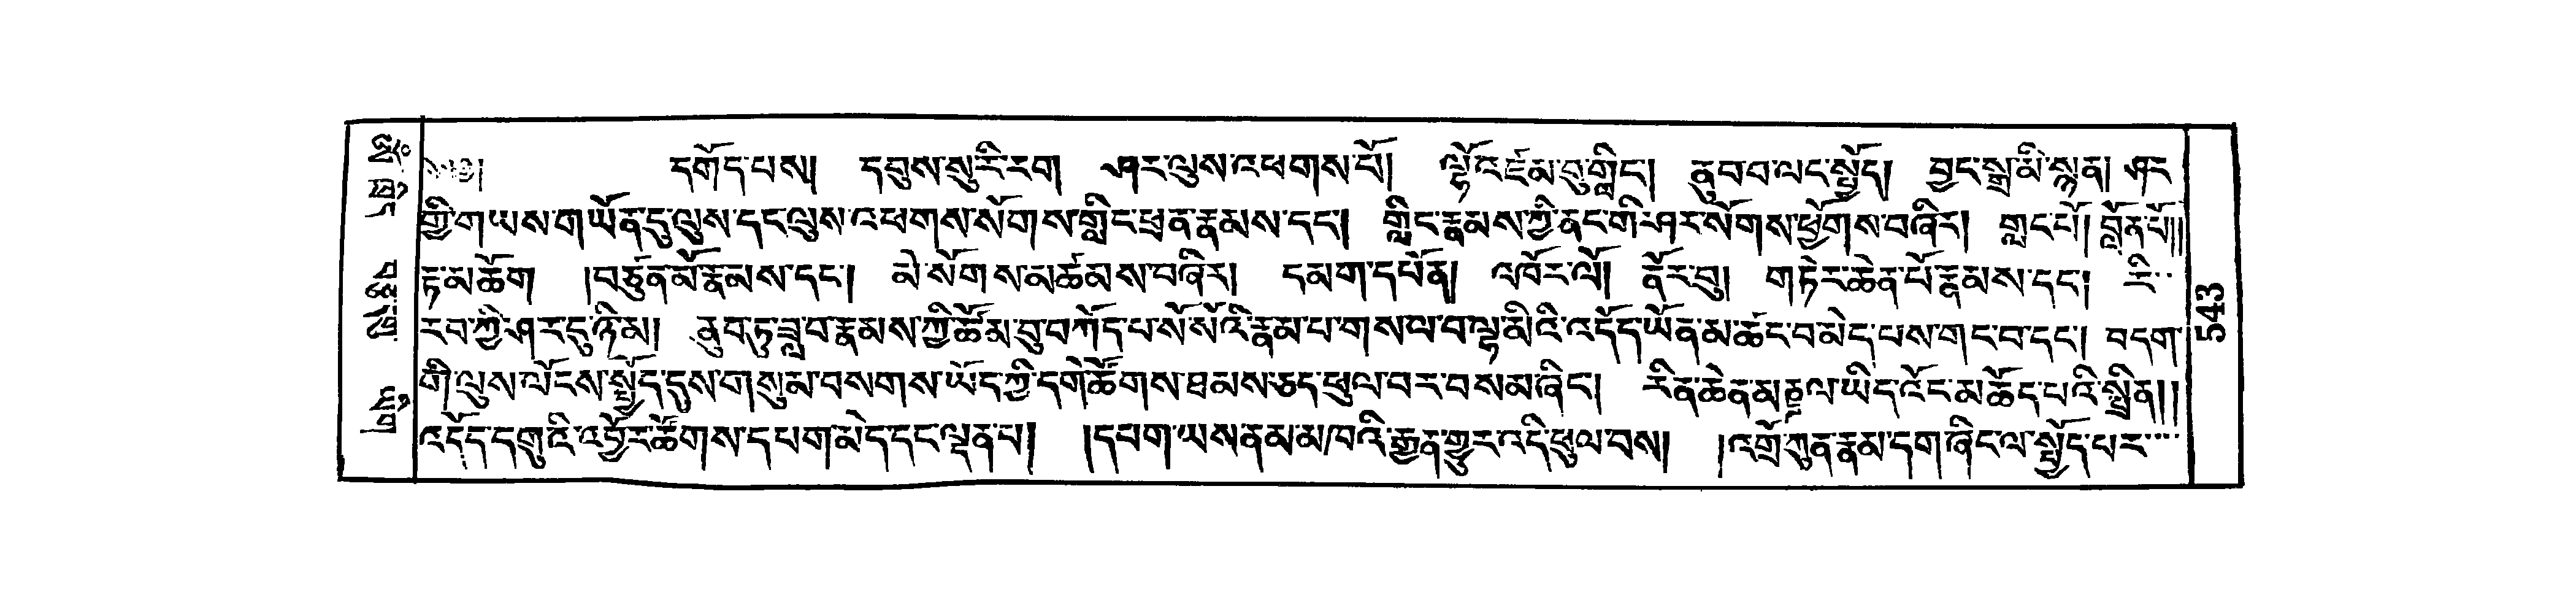 དགོད་པས། དབུས་སུ་རི་རབ ཤར་ལུས་འཕགས་པོ། ལྷོ་འཛམ་བུ་གླིང། ནུབ་བ་ལང་སྤྱོད། བྱང་སྒྲ་མི་སྙན། ཤར
གྱི་གཡས་གཡོན་དུ་ལུས་དང་ལུས་འཕགས་སོགས་གླིང་ཕྲན་རྣམས་དང། གླིང་རྣམས་ཀྱི་ནང་གི་ཤར་སོགས་ཕྱོགས་བཞིར། གླང་པོ། བློན་པོ།།
རྟ་མཆོག །བཙུན་མོ་རྣམས་དང། མེ་སོགས་མཚམས་བཞིར། དམག་དཔོན། འཁོར་ལོ། ནོར་བུ། གཏེར་ཆེན་པོ་རྣམས་དང། རི་
རབ་ཀྱི་ཤར་དུ་ཉི་མ། ནུབ་ཏུ་ཟླ་བ་རྣམས་ཀྱི་ཚོམ་བུ་བཀོད་པ་སོ་སོའི་རྣམ་པ་གསལ་བ་ལྷ་མིའི་འདོད་ཡོན་མ་ཚང་བ་མེད་པས་གང་བ་དང། བདག་
གི་ལུས་ལོངས་སྤྱོད་དུས་གསུམ་བསགས་ཡོད་ཀྱི་དགེ་ཚོགས་ཐམས་ཅད་ཕུལ་བར་བསམ་ཞིང། རིན་ཆེན་མཎྜལ་ཡིད་འོང་མཆོད་པའི་སྤྲིན།།
འདོད་དགུའི་འབྱོར་ཚོགས་དཔག་མེད་དང་ལྡན་པ། །དཔག་ཡས་ནམ་མཁའི་རྒྱན་གྱུར་འདི་ཕུལ་བས། །འགྲོ་ཀུན་རྣམ་དག་ཞིང་ལ་སྤྱོད་པར་
345